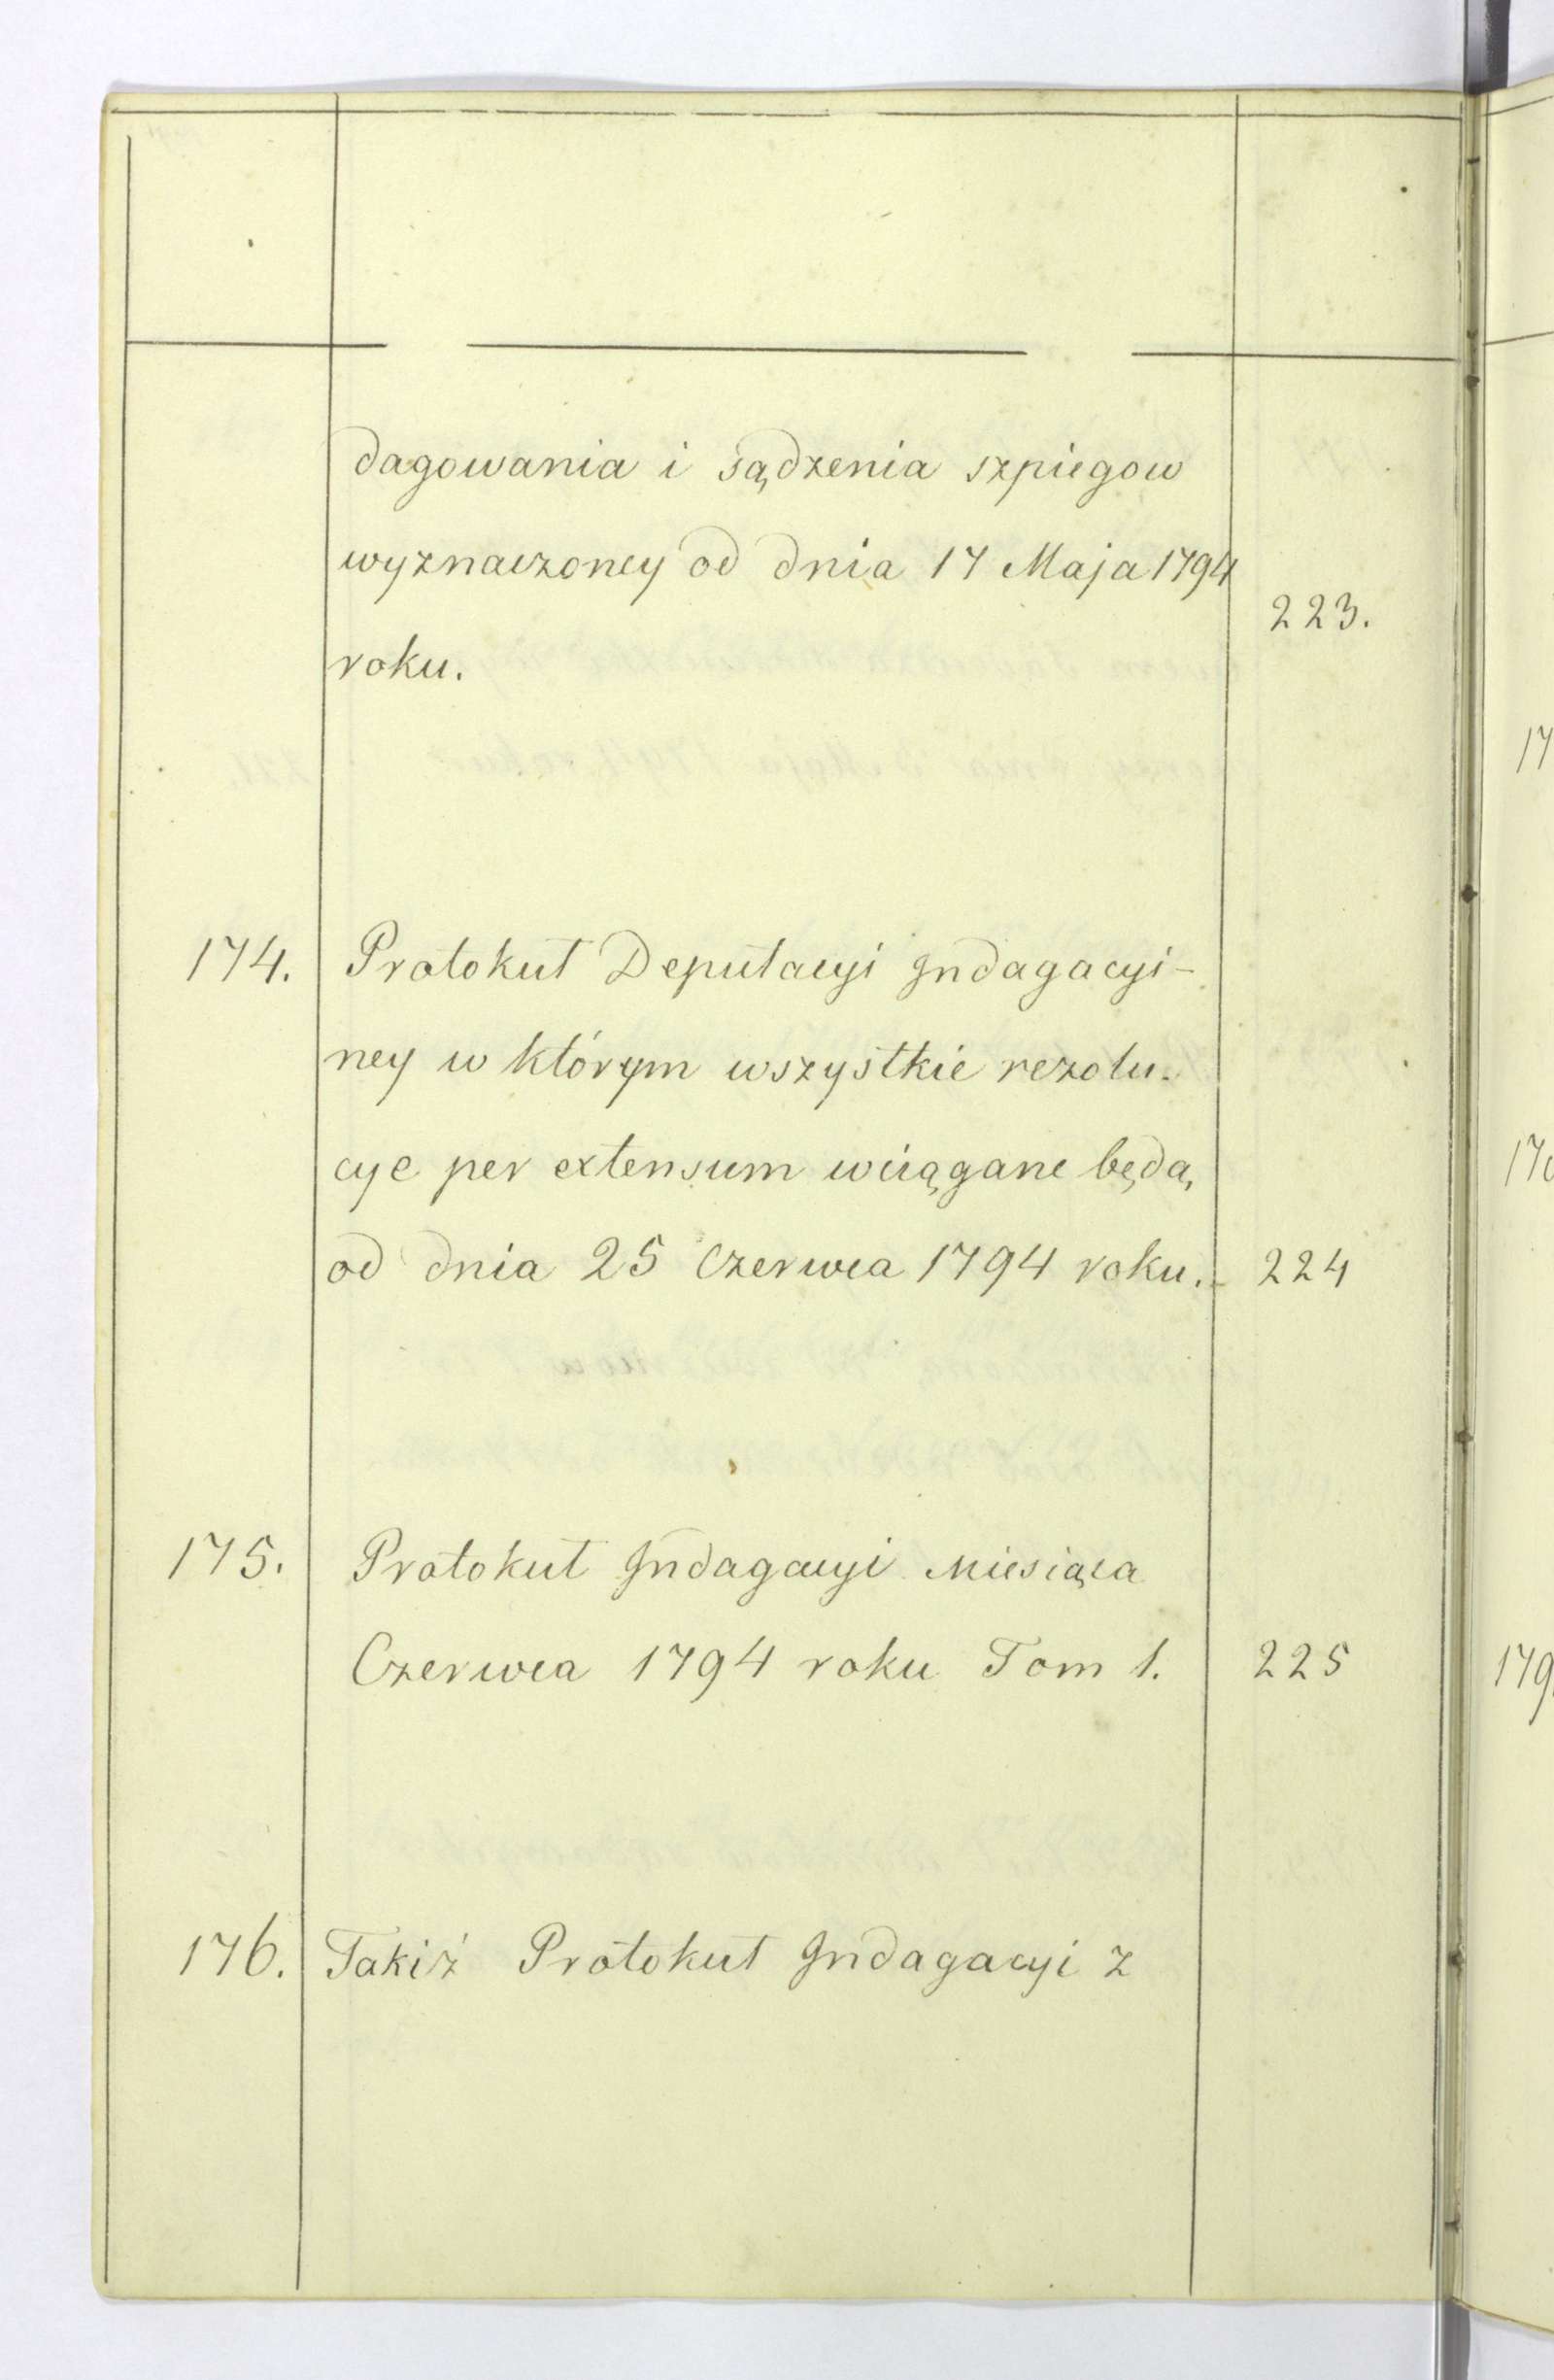 dagowania i sądzenia szpiegow
wyznaczoney od dnia 17 Maja 1794
223.
roku.
174. Protokuł Deputacyi Indagacyi-
ney w którym wszystkie rezolu-
cye per extensum wciągane będą,
od dnia 25 Czerwca 1794 roku. - 224
175. Protokuł Indagacyi Miesiąca
Czerwca 1794 roku Tom 1. 225
176. Takiż Protokuł Indagacyi z
17
17
179.